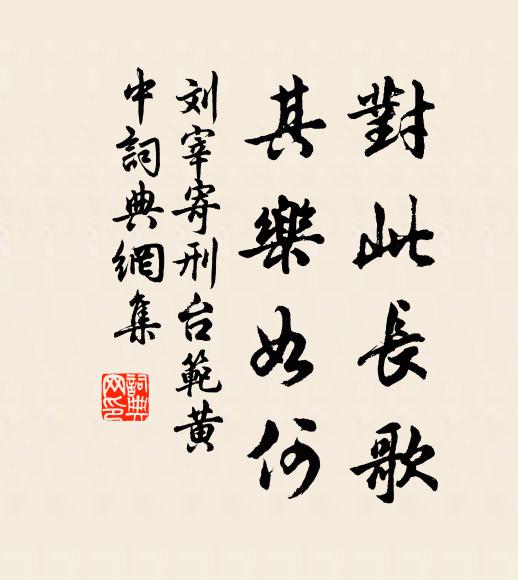 對此長歌
其樂如何
刘宰寄刑台範黄
中詞典網集
詞典網印